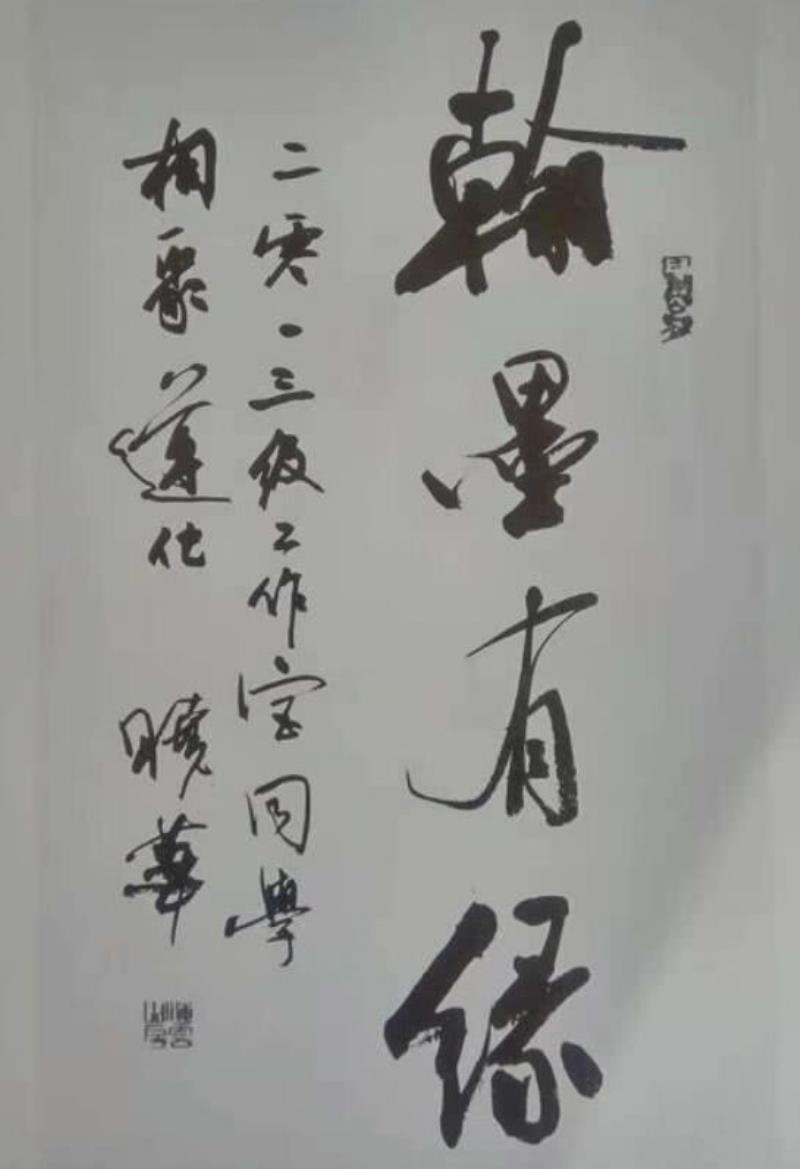 翰墨有缘
二零一三级工作室同学
相聚遵化 晓華